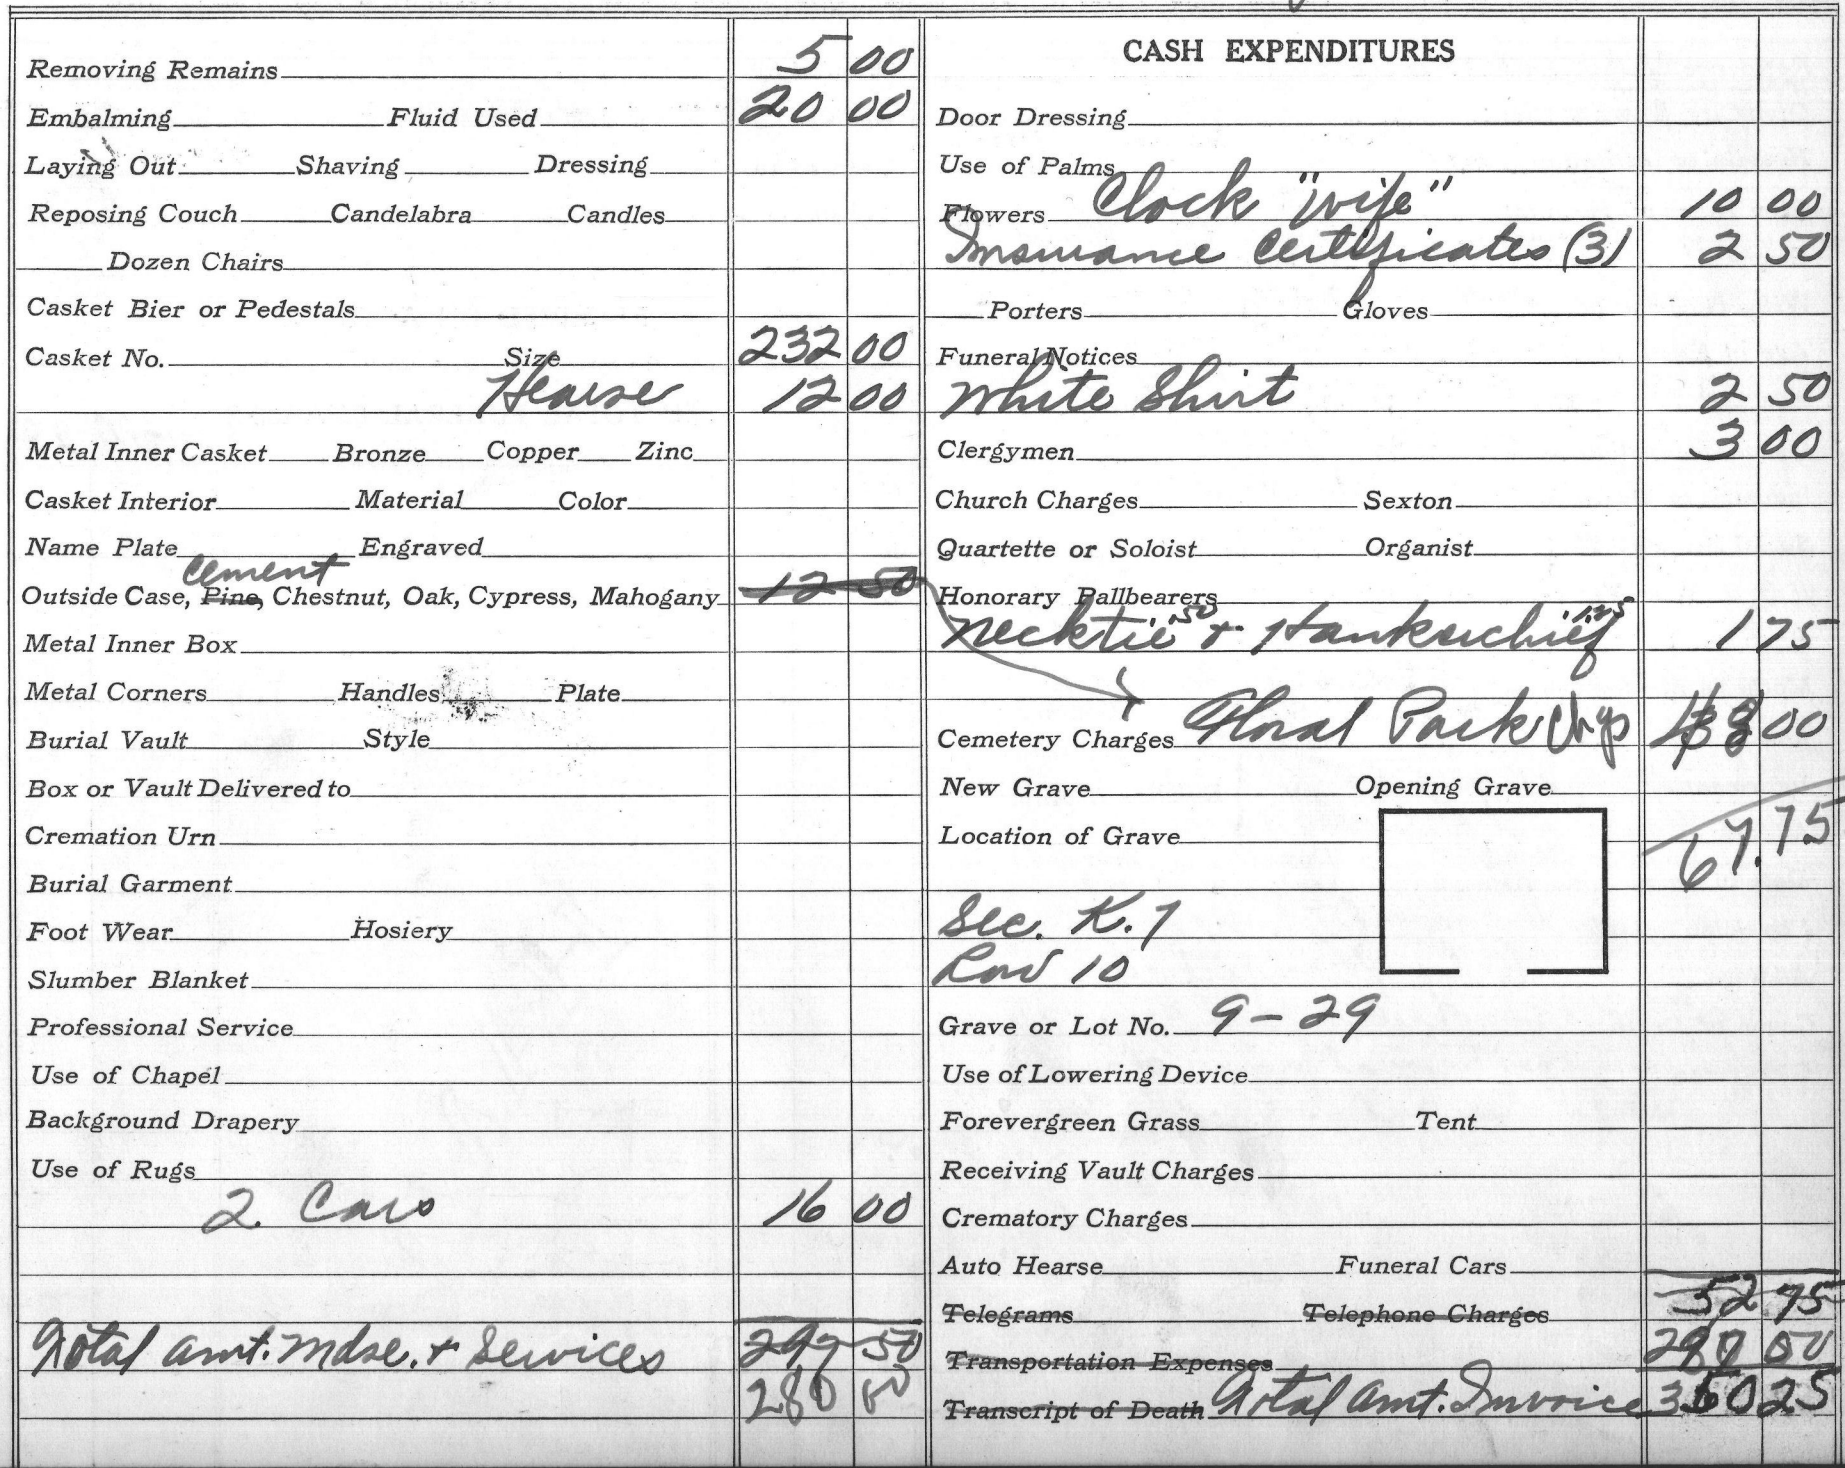 Removing Remains 5 00
Embalming Fluid Used 20 00
Laying Out Shaving Dressing
Reposing Couch Candelabra Candles
Dozen Chairs
Casket Bier or Pedestals
Casket No. Size 232 00
Hearse 12 00
Metal Inner Casket Bronze Copper Zinc
Casket Interior Material Color
Name Plate Engraved
Cement
Outside Case, Pine, Chestnut, Oak, Cypress, Mahogany 12 50
Metal Inner Box
Metal Corners Handles Plate
Burial Vault Style
Box or Vault Delivered to
Cremation Urn
Burial Garment
Foot Wear Hosiery
Slumber Blanket
Professional Service
Use of Chapel
Background Drapery
Use of Rugs
2 Cars 16 00
Total Amt. Mdse. + Services 297 50
280 50
CASH EXPENDITURES
Door Dressing
Use of Palms
Flowers Clock "Wife" 10 00
Insurance Certificates (3) 2 50
Porters Gloves
Funeral Notices
White Shirt 2 50
Clergymen 3 00
Church Charges Sexton
Quartette or Soloist Organist
Honorary Pallbearers
Necktie .50 + Hankerchief 1.25 1 75
Cemetery Charges Floral Park Chgs 00
New Grave Opening Grave
Location of Grave 67.75
Sec. K.7
Row 10
Grave or Lot No. 9-29
Use of Lowering Device
Forevergreen Grass Tent
Receiving Vault Charges
Crematory Charges
Auto Hearse Funeral Cars
Telegrams Telephone Charges 52 75
Transportation Expenses 297 50
Transcript of Death Total Amt. Invoice 350 25